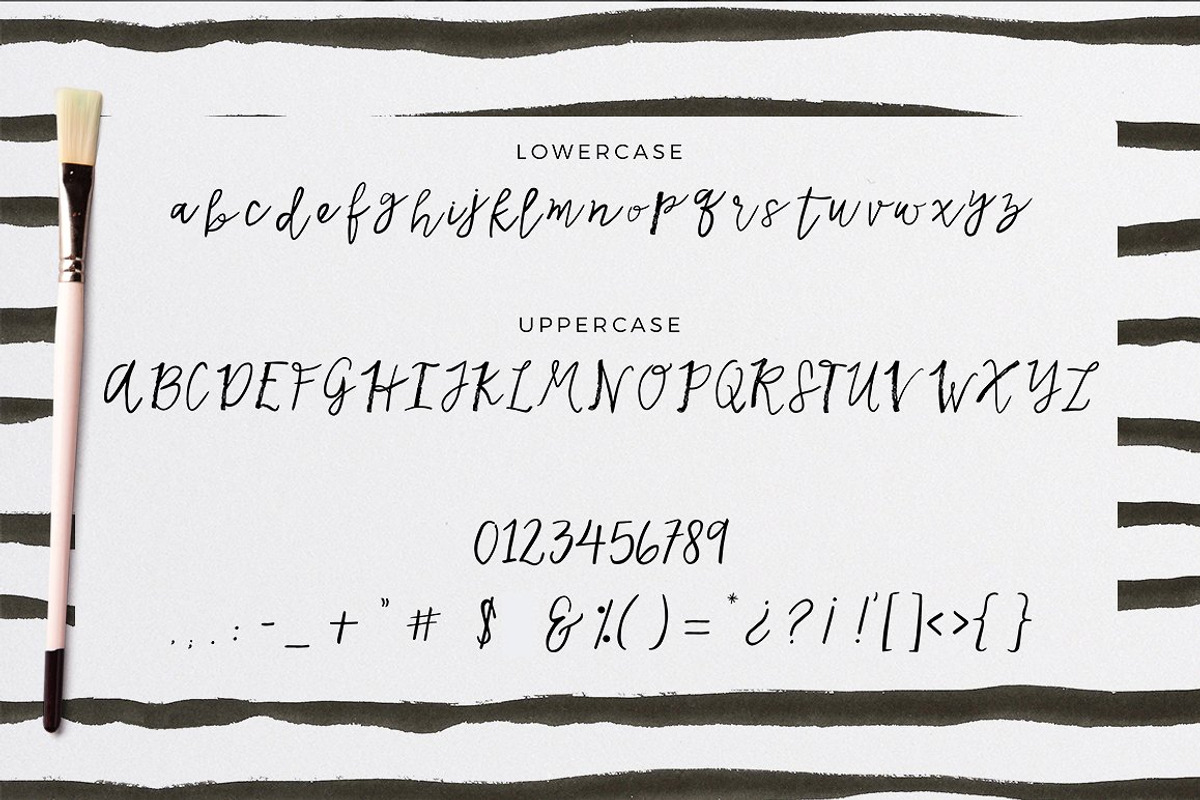 LOWERCASE
abcdefghijklmnopqrstuvwxyz
UPPERCASE
ABCDEFGHIJKLMNOPQRSTUVWXYZ
0123456789
, ; . : - _ + " # $ & % ( ) = * ¿ ? ¡ ! ' [ ] < > { }